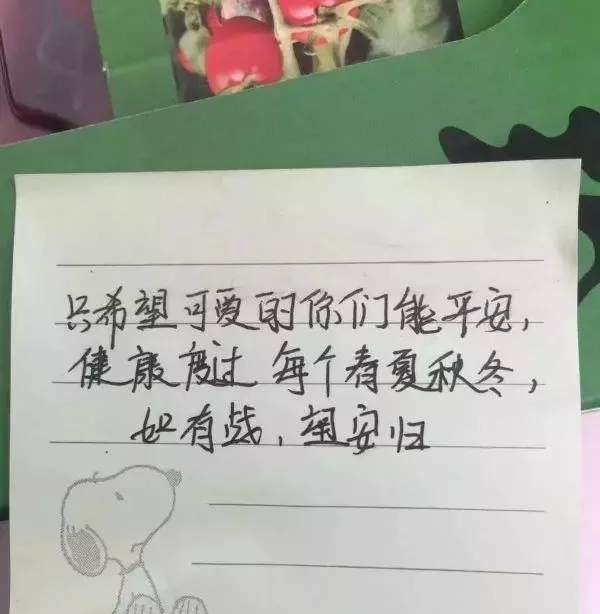 只希望可爱的你们能平安,
健康度过每个春夏秋冬,
如有战,望安归